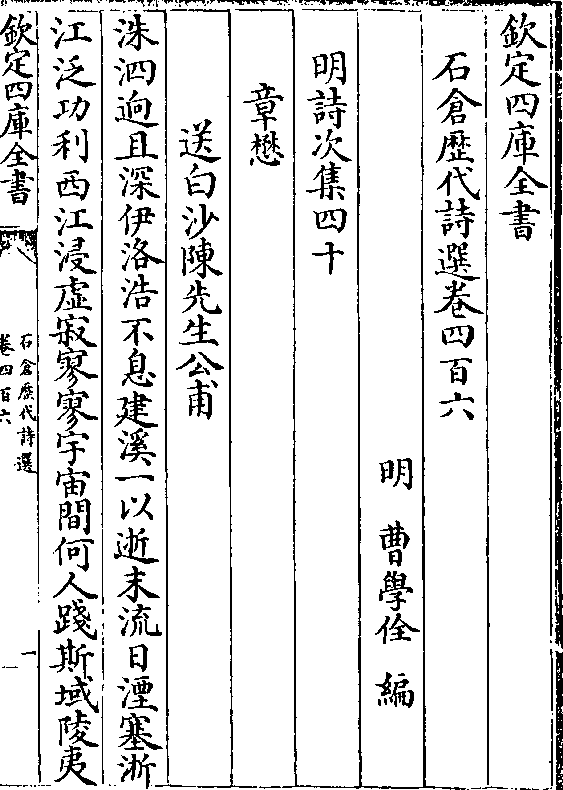 欽定四庫全書
石倉歷代詩選卷四百六
明 曹學佺 編
明詩次集四十
章懋
送白沙陳先生公甫
洙泗逈且深伊洛浩不息建溪一以逝末流日湮塞浙
江泛功利西江浸虛寂寥寥宇宙間何人踐斯域陵夷
欽定四庫全書
石倉歷代詩選
卷四百六
一